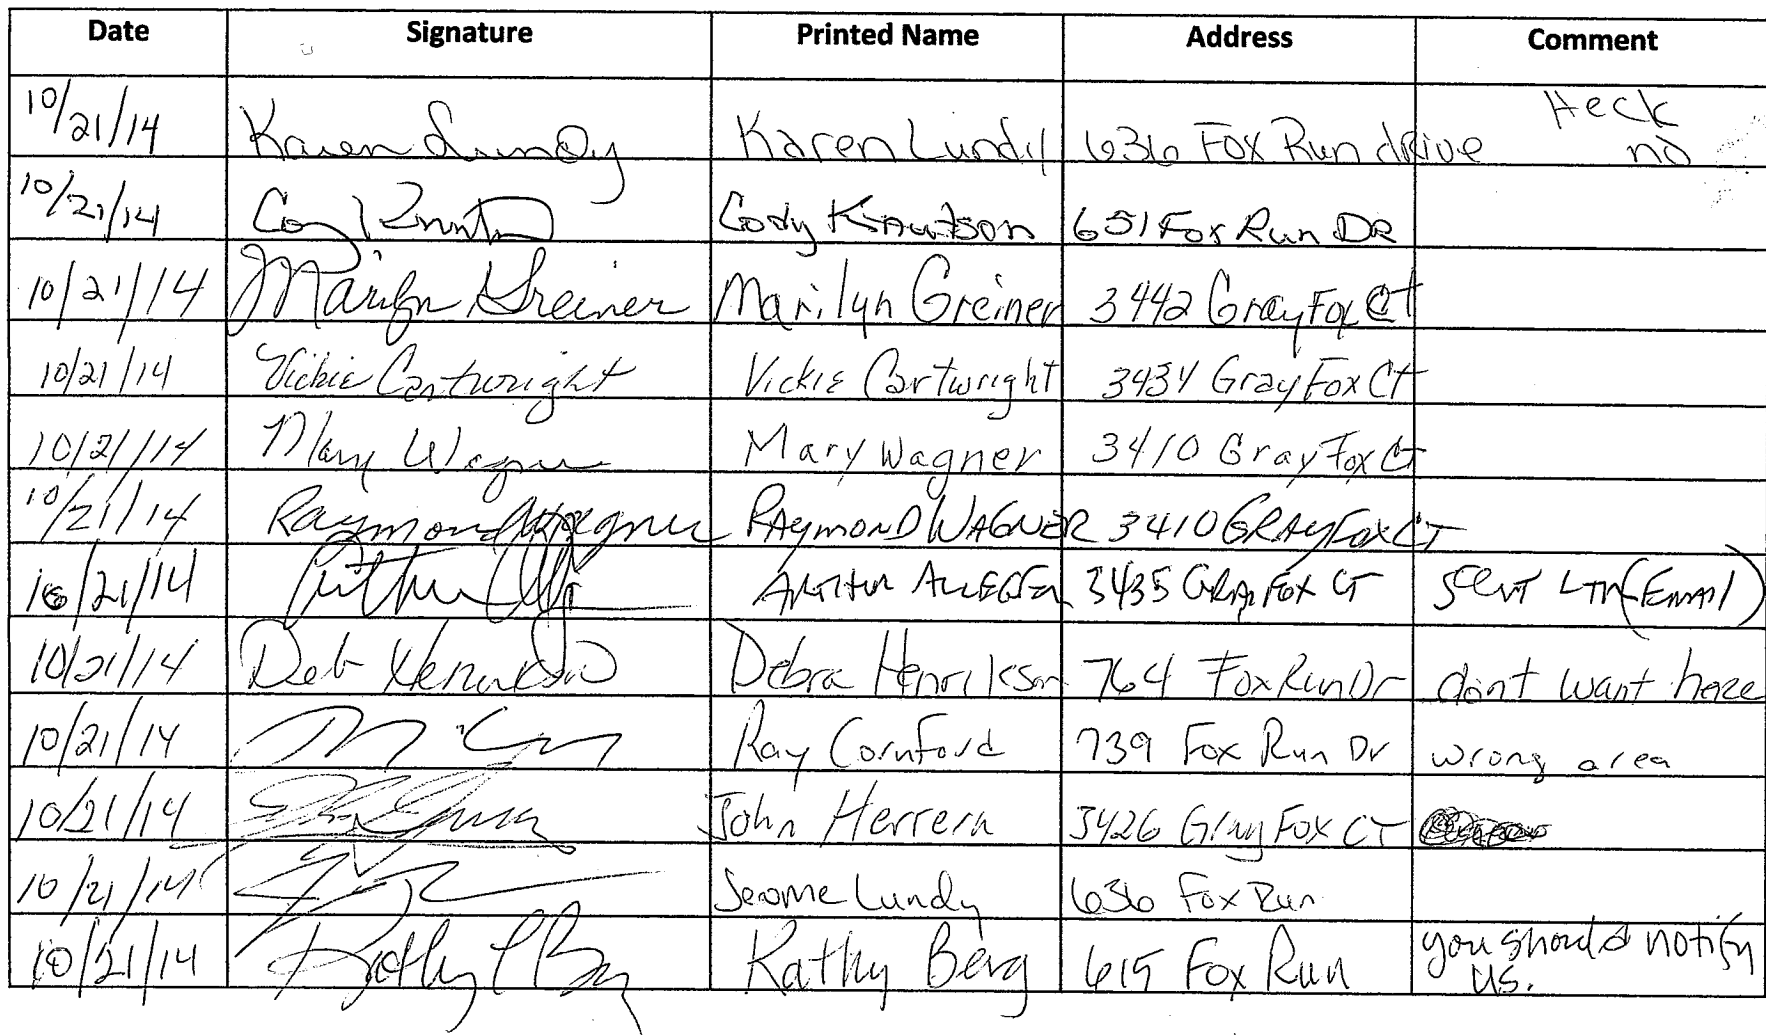 Date Signature Printed Name Address Comment
10/21/14 Karen Lundy Karen Lundy 636 Fox Run drive Heck no
10/21/14 Cody Knutson Cody Knutson 651 Fox Run DR
10/21/14 Marilyn Greiner Marilyn Greiner 3442 Gray Fox Ct
10/21/14 Vickie Cartwright Vickie Cartwright 3434 Gray Fox Ct
10/21/14 Mary Wagner Mary Wagner 3410 Gray Fox Ct
10/21/14 Raymond Wagner RAymonD WAGNER 3410 GRAY FOX CT
10/21/14 Arthur ARTHUR 3435 GRAY FOX CT SENT LTR (EMAIL)
10/21/14 Deb Henrikson Debra Henrikson 764 Fox Run Dr dont want here
10/21/14 Ray Cornford 739 Fox Run Dr wrong area
10/21/14 John Herrera 3426 Gray Fox CT
10/21/14 Jerome Lundy 636 Fox Run
10/21/14 Kathy Berg Kathy Berg 615 Fox Run you should notify
us.